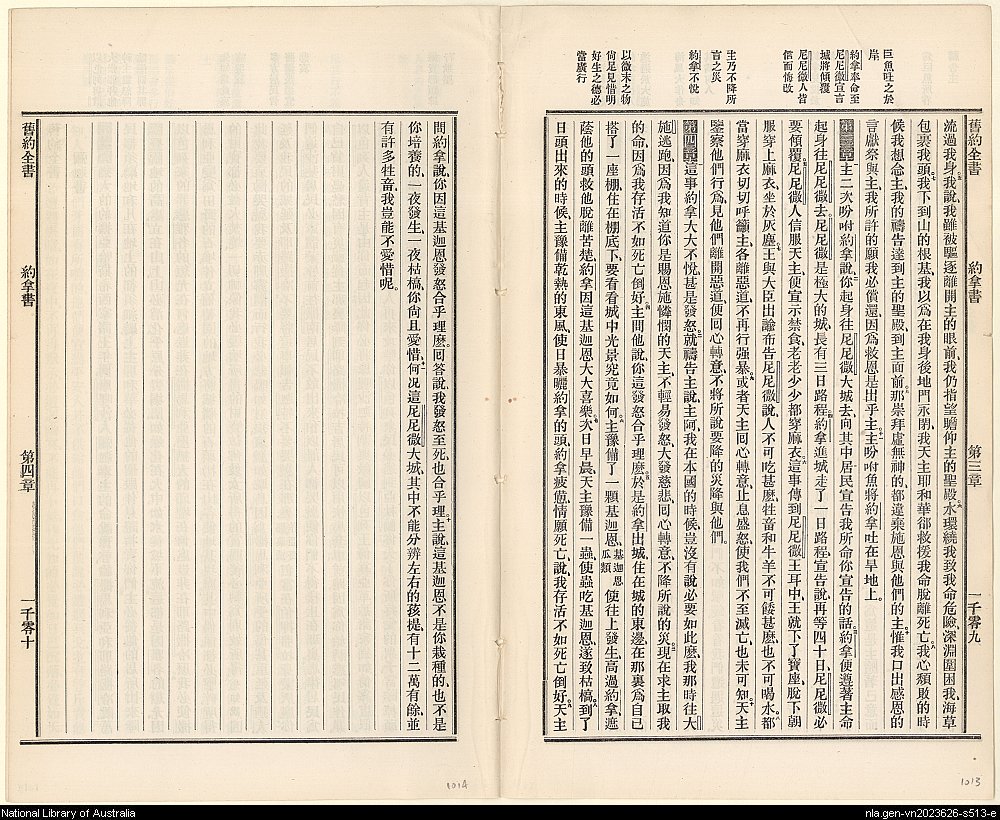 舊約全書
約拿書
第三章
一千零九
巨魚吐之於
岸
約拿奉命至
尼尼微宣言
城將傾覆
尼尼微人皆
信而悔改
主乃不降所
言之災
約拿不悅
以微末之物
尚足見惜明
好生之德必
當廣行
流過我身我說我雖被驅逐離開主的眼前我仍指望瞻仰主的聖殿水環繞我致我命危險深淵圍困我海草
包裹我頭我下到山的根基我以爲在我身後地門永閉我天主耶和華卻救援我命脫離死亡我心頹敗的時
候我想念主我的禱告達到主的聖殿到主面前那崇拜虛無神的都違棄施恩與他們的主惟我口出感恩的
言獻祭與主我所許的願我必償還因爲救恩是出乎主主吩咐魚將約拿吐在旱地上。
第三章主二次吩咐約拿說你起身往尼尼微大城去向其中居民宣告我所命你宣告的話約拿便遵著主命
起身往尼尼微去尼尼微是極大的城長有三日路程約拿進城走了一日路程宣告說再等四十日尼尼微必
要傾覆尼尼微人信服天主便宣示禁食老老少少都穿麻衣這事傳到尼尼微王耳中王就下了寶座脫下朝
服穿上麻衣坐於灰塵王與大臣出諭布告尼尼微說人不可吃甚麽牲畜和牛羊不可餧甚麽也不可喝水都
當穿麻衣切切呼籲主各離惡道不再行强暴或者天主回心轉意止息盛怒使我們不至滅亡也未可知天主
鑒察他們行爲見他們離開惡道便回心轉意不將所說要降的災降與他們。
第四章這事約拿大大不悅甚是發怒就禱告主說主阿我在本國的時候豈沒有說必要如此麽我那時往大
施逃跑因爲我知道你是賜恩施憐憫的天主不輕易發怒大發慈悲回心轉意不降所說的災現在求主取我
的命因爲我存活不如死亡倒好主問他說你這發怒合乎理麽於是約拿出城住在城的東邊在那裏爲自已
搭了一座棚住在棚底下要看看城中光景究竟如何主豫備了一顆基迦恩基迦恩瓜類便往上發生高過約拿遮
蔭他的頭救他脫離苦楚約拿因這基迦恩大大喜樂次日早晨天主豫備一蟲使蟲吃基迦恩遂致枯槁到了
日頭出來的時候主豫備乾熱的東風使日暴曬約拿的頭約拿疲憊情願死亡說我存活不如死亡倒好天主
問約拿說你因這基迦恩發怒合乎理麽回答說我發怒至死也合乎理主說這基迦恩不是你栽種的也不是
你培養的一夜發生一夜枯槁你尚且愛惜何况這尼尼微大城其中不能分辨左右的孩提有十二萬有餘並
有許多牲畜我豈能不愛惜呢。
舊約全書
約拿書
第四章
一千零十
1014
1013
National Library of Australia
nla.gen-vn2023626-s513-e